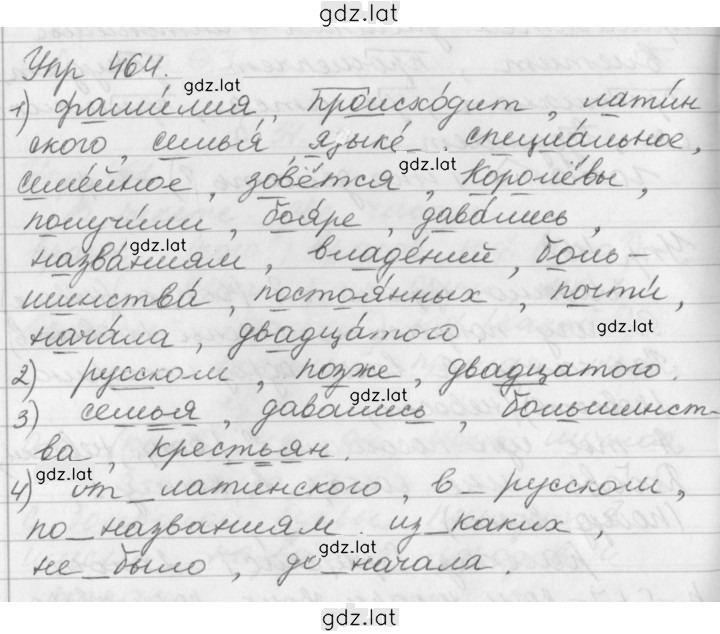 gdz.lat
Упр 464.
gdz.lat
1) фамилия, происходит, латин
ского, семья, языке, специальное,
gdz.lat
семейное, зовётся, Королёвы,
получили, бояре, давались,
gdz.lat
названиям, владений, боль-
шинства, постоянных, почти,
начала, двадцатого
gdz.lat
2) русском, позже, двадцатого.
gdz.lat
3) семья, давались, большинст-
ва, крестьян.
gdz.lat
4) от_латинского, в_русском,
по_названиям. из_каких,
не_было, до_начала.
gdz.lat
gdz.lat